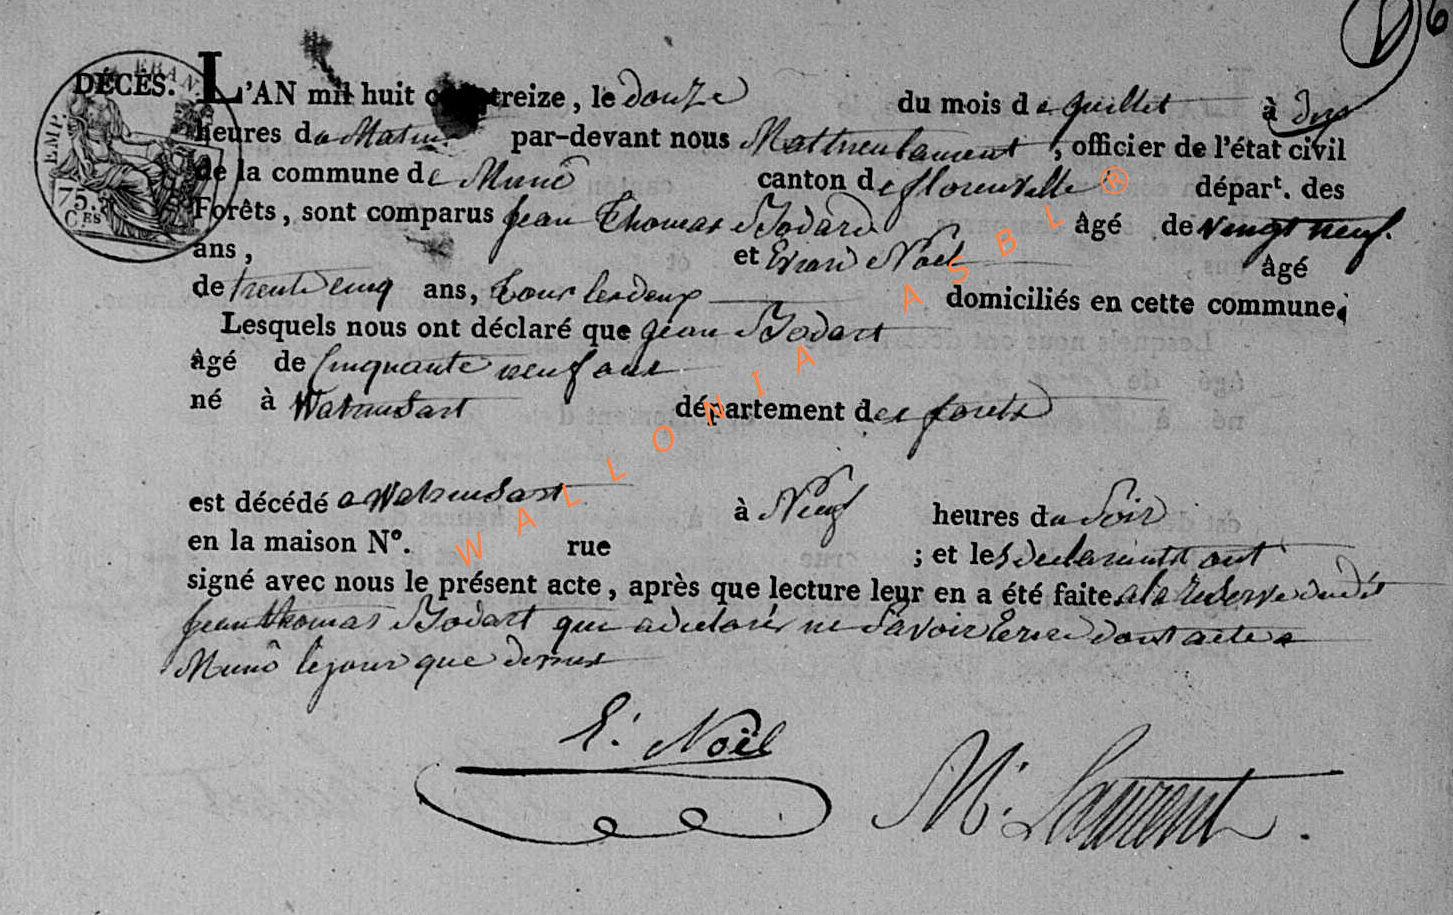 6
DÉCÈS. L'AN mil huit cent treize, le douze du mois de juillet à dix
heures du Matin par-devant nous Mathieu Laurent, officier de l'état civil
de la commune de Muno canton de florenville départ. des
Forêts, sont comparus jean Thomas Bodard âgé de vingt neuf.
ans, et Evrard Noël âgé
de trente cinq ans, Tous les deux domiciliés en cette commune.
Lesquels nous ont déclaré que jean Bodart
âgé de Cinquante neuf ans
né à Watrinsart département des forets
est décédé a Watrinsart à Neuf heures du Soir
en la maison Nº. rue ; et les declarants ont
signé avec nous le présent acte, après que lecture leur en a été faite a la reserve dudit
jean thomas Bodart que a declarés ne Savoir Ecrire dont acte a
Muno le jour que dessus
E. Noël
M. Laurent.
EMP.
75.
CES
WALLONIA ASBL ®